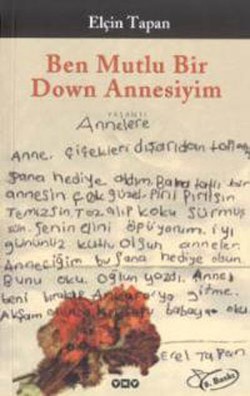 Elçin Tapan
Ben Mutlu Bir
Down Annesiyim
YAŞANTI
Annelere
Anne, çiçekleri dışarıdan topladım
Sana hediye aldım. Bana tatlı bir
annesin çok güzel. Pırıl pırılsın
Temizsin. Toz alıp koku sürmüş
sün. Senin elini öpüyorum. iyi
gününüz kutlu olsun anneler
Anneciğim bu sana hediye olsun.
Bunu oku. oğlun yazdı. Anne
beni bırakıp Ankara'ya gitme.
Akşam babaya oku.
Erel Tapan
YKY
8. Baskı